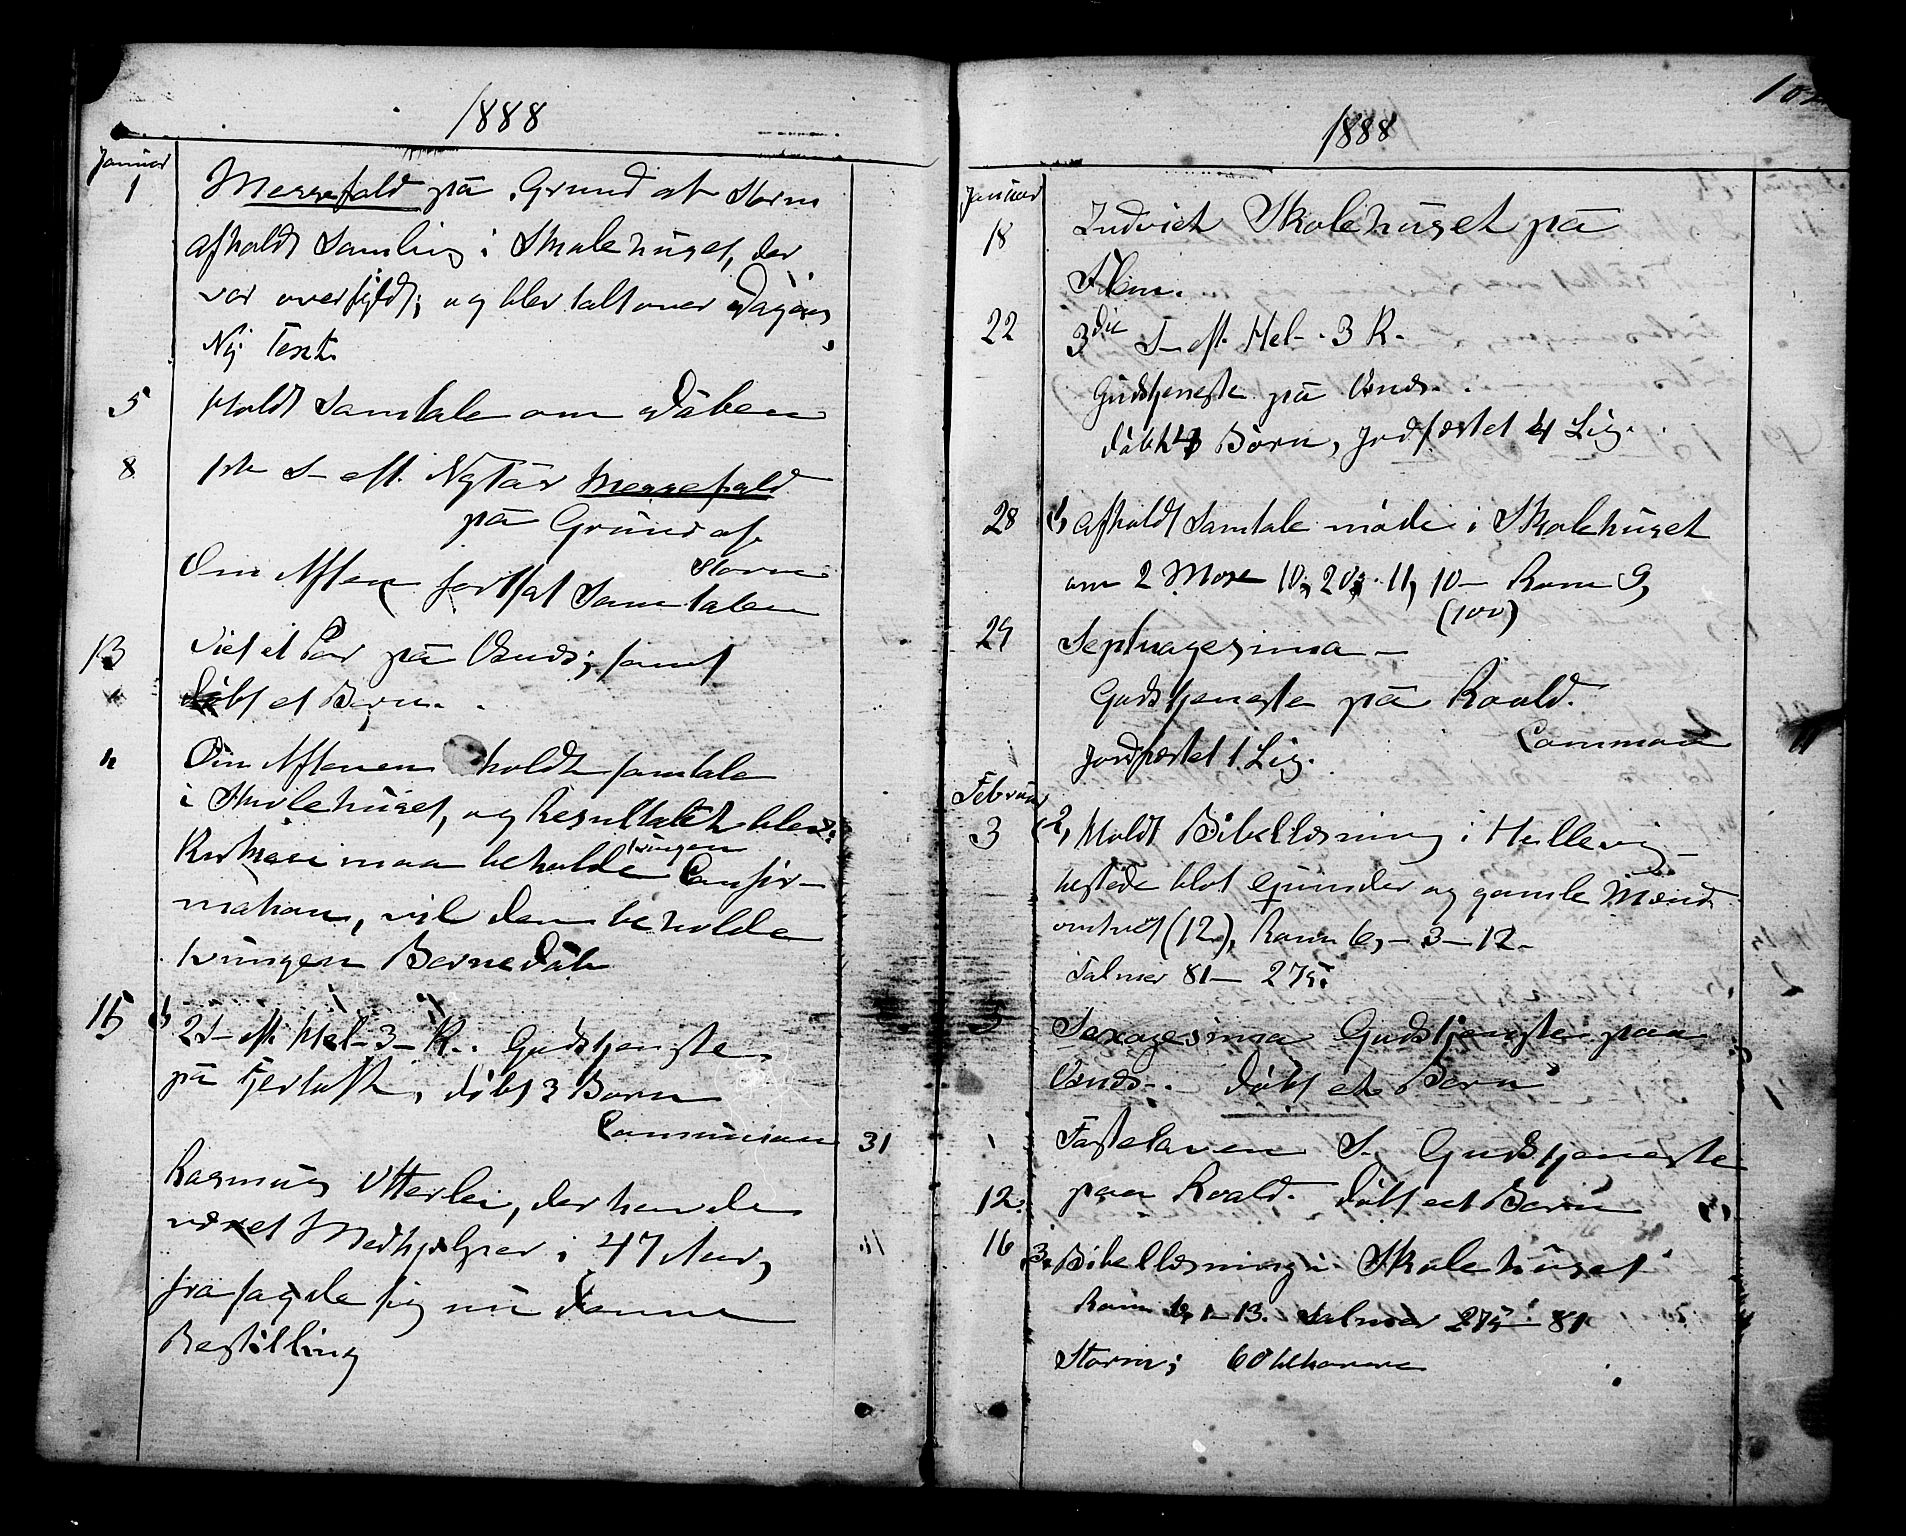 1888
Januar
1 Messefald på Grund af Storm
afholdt Samling i Skolehuset, der
var overfyldt; og blev talt over Dagens
Ny Text.
5 Holdt Samtale om Dåben
8 1ste S. eft. Nytår Messefald
på Grund af
Storm
Om Aften fortsat Samtalen
13 Viet et Par på Vends; samt
" døbt et Barn.
" Om Aftenen holdt samtale
i Skolehuset, og Resultatet blev:
Kirken maa beholde tvungen Confir-
mation, vil den beholde
tvungen Barnedåb
15 2 S. eft. Hel. 3 K. Gudstjeneste
på Fjertoft, døbt 3 Børn
Communion 31
Rasmus Utterlei, der havde
været Medhjelper i 47 Aar,
frasagde sig nu denne
Bestilling
102
1888
Januar
18 Indviet Skolehuset på
Flem.
22 3die S. eft. Hel. 3 K.
Gudstjeneste på Vends.
døbt 4 Børn, Jordfæstet 4 Lig.
28 1, afholdt Samtale møde i Skolehuset
om 2 Mose 10, 20; 11, 10 - Rom 9,
(100)
29 Septuagesima -
Gudstjeneste på Roald.
Communion
Jordfæstet 1 Lig.
Februar
3 2, Holdt Bibellæsning i Hellevig
tilstede blot Qvinder og gamle Mænd
omtret (12), Rom 6, - 3 - 12.
Salmer 81 - 275
5 Sexagesima Gudstjeneste paa
Vends. døbt et Barn
Fastelavens S. Gudstjeneste
12. paa Roald. døbt et Barn
16 3, Bibellæsning i Skolehuset
Rom 6, 1 - 13. Salmer 275 - 81
Storm; 60 tilhørere